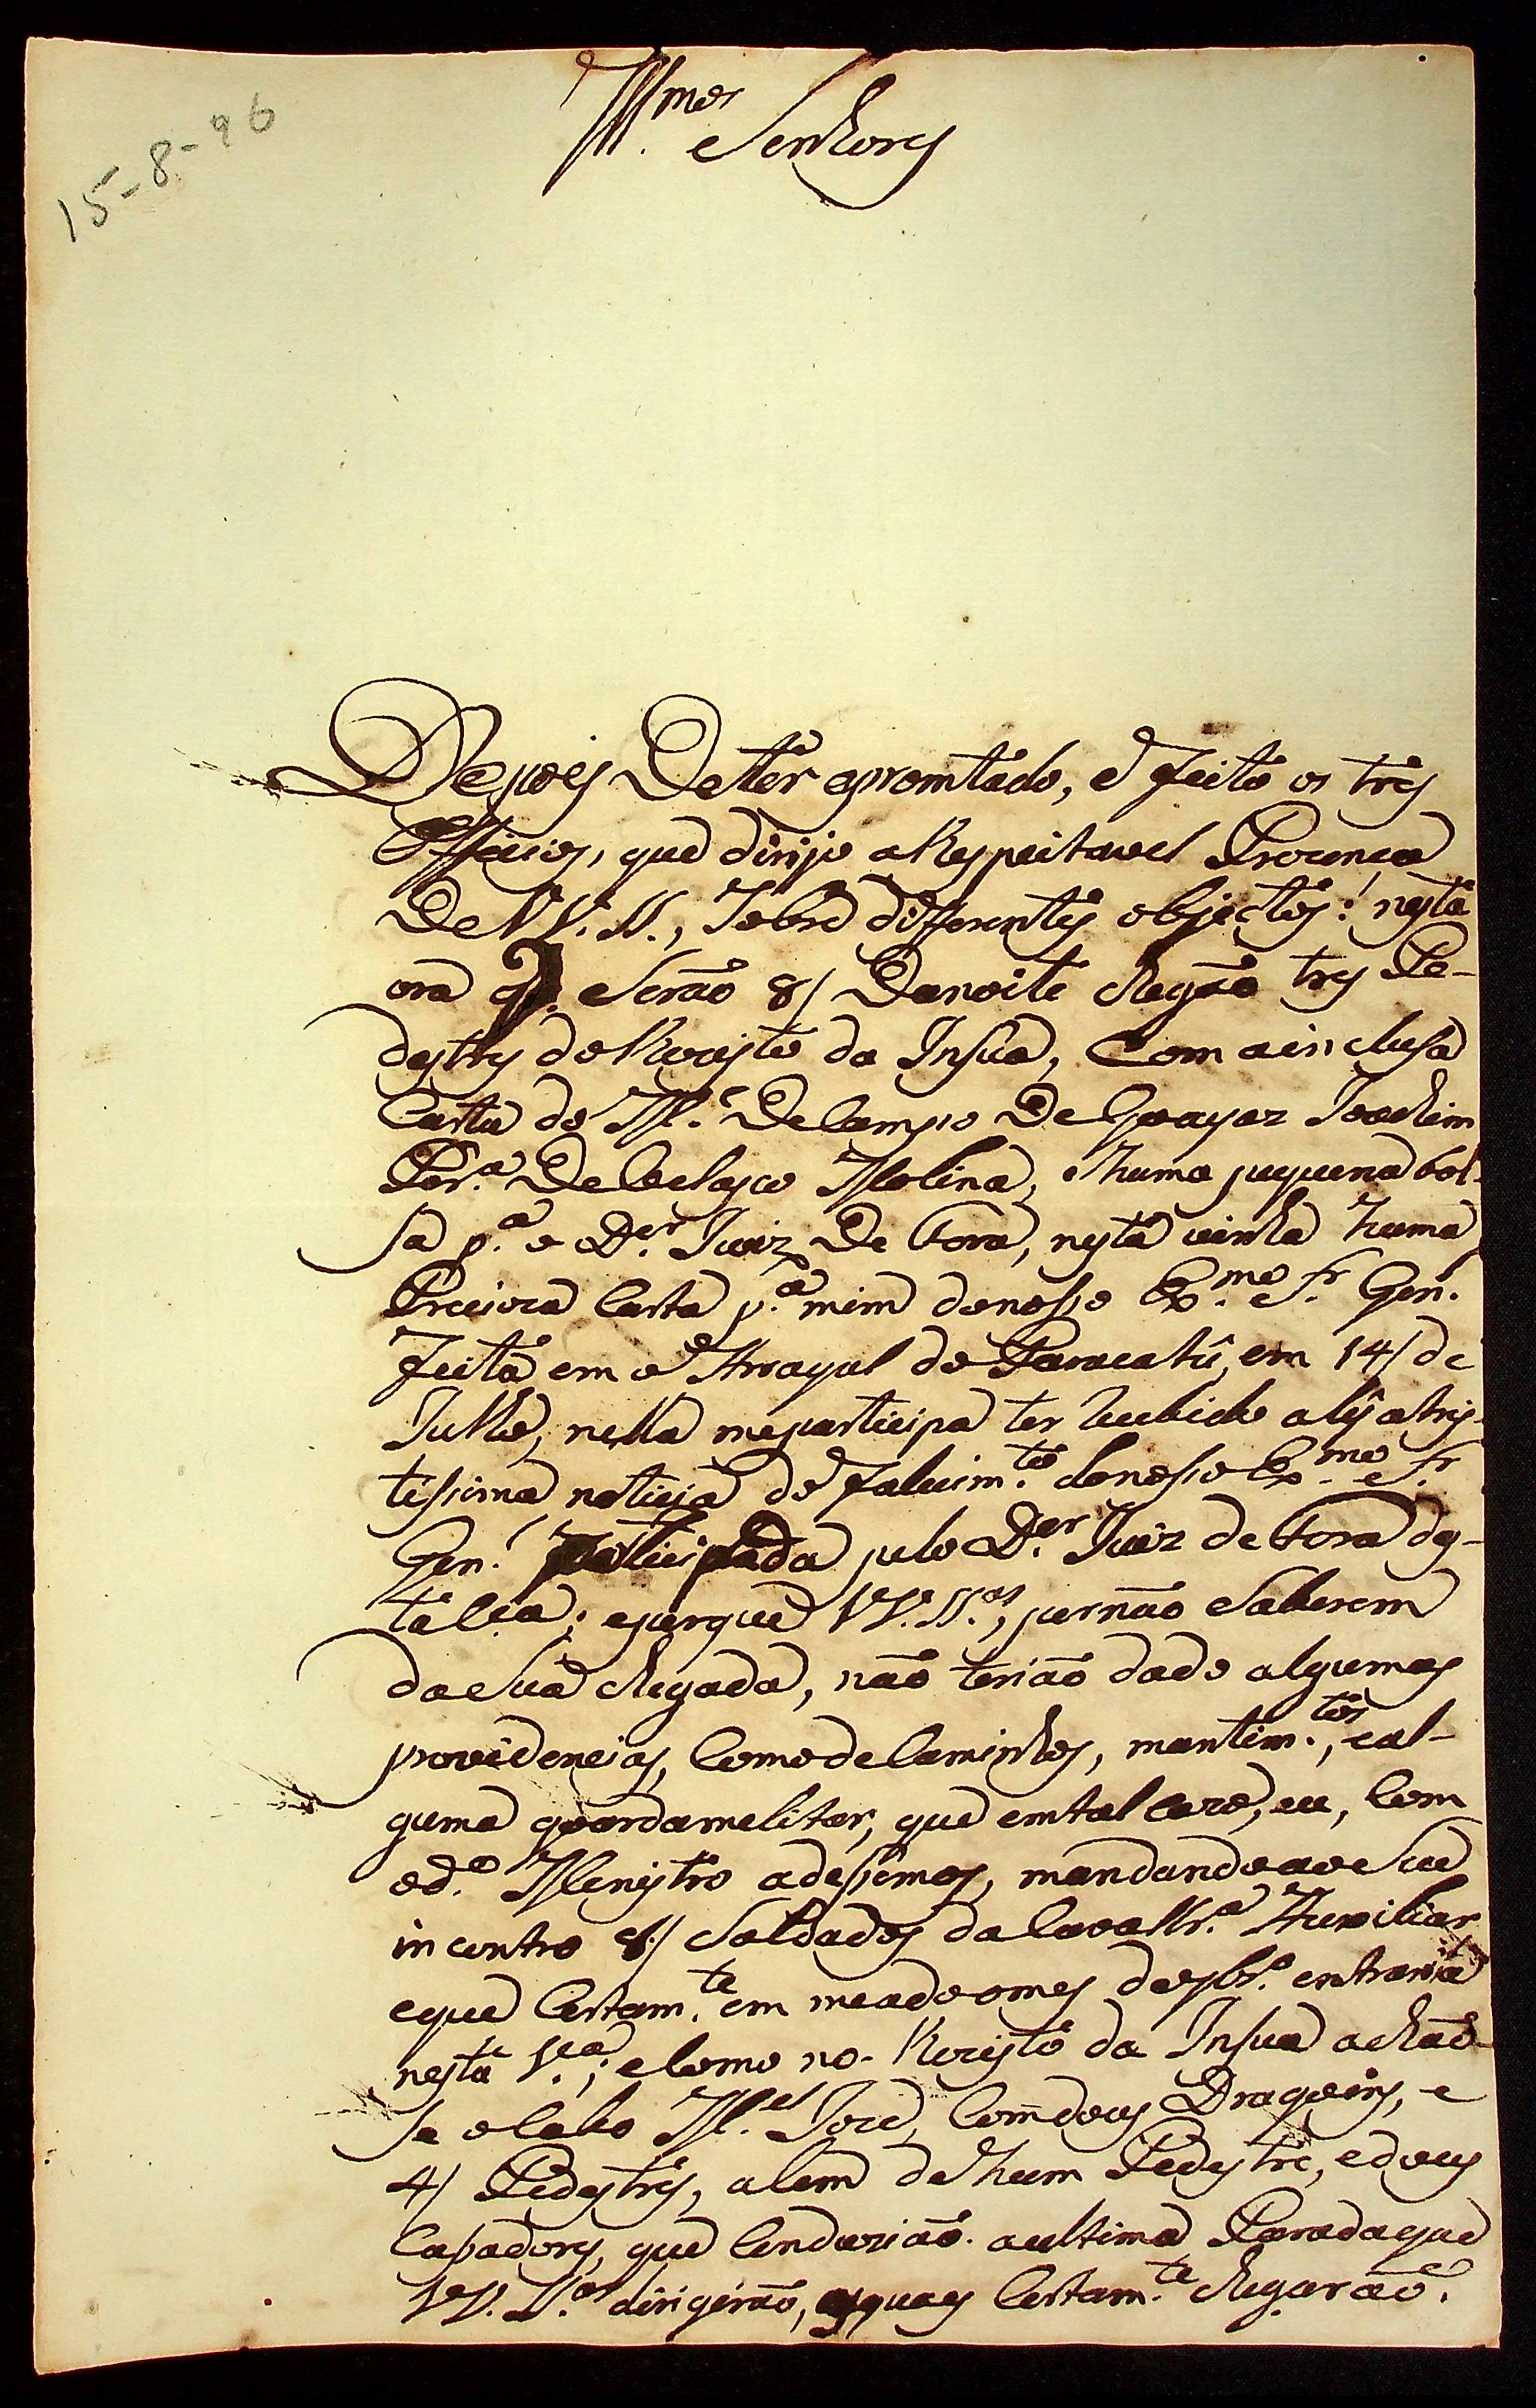 15-8-96
Ill.mos Senhores
Depois De ter apromtado, e feito os tres
Officios, que dirijo a Respeitavel Prezença
De VV. SS., Sobre differentes objectos: nesta
ora q̃ Serão 8/ Da noite chegão tres Pe-
destres do Rezisto da Insua, Com a inclusa
Carta do M.e De Campo De Goayaz Joachim
Per.a De Velasco Molina, e huma pequena bol-
sa p.a o D.or Juiz De Fora, nesta vinha huma
Precioza Carta p.a mim do nosso Ex.mo Sr. Gen.
feita em o Arrayal do Paracatû, em 14/ de
Julho, nella me participa ter recebido aly a tris-
tissima noticia do falecim.to do nosso Ex.mo Sr.
Gen.l participada pelo D.or Juiz de Fora des-
ta V.a; e porque VV. SS.as, por não Saberem
da Sua chegada, não terião dado algumas
providencias, Como de Caminhos, mantim.tos, e al-
guma goarda melitar, que em tal cazo, eu, Com
o d.o Menistro adessemos, mandando ao Seu
incontro 8/ Soldados da Cavallr.a Auxiliar
e que Certam.te em meado o mes de 7br.o entraria
nesta V.a; e Como no Rezisto da Insua achão-
se o Cabo M.el José, Com dous Dragoins, e
4/ Pedestres, alem de hum Pedestre, e dous
Casadores, que Conduzião a ultima Parada que
VV. SS.as dirigirão, os quaes Certam.te chegarão.